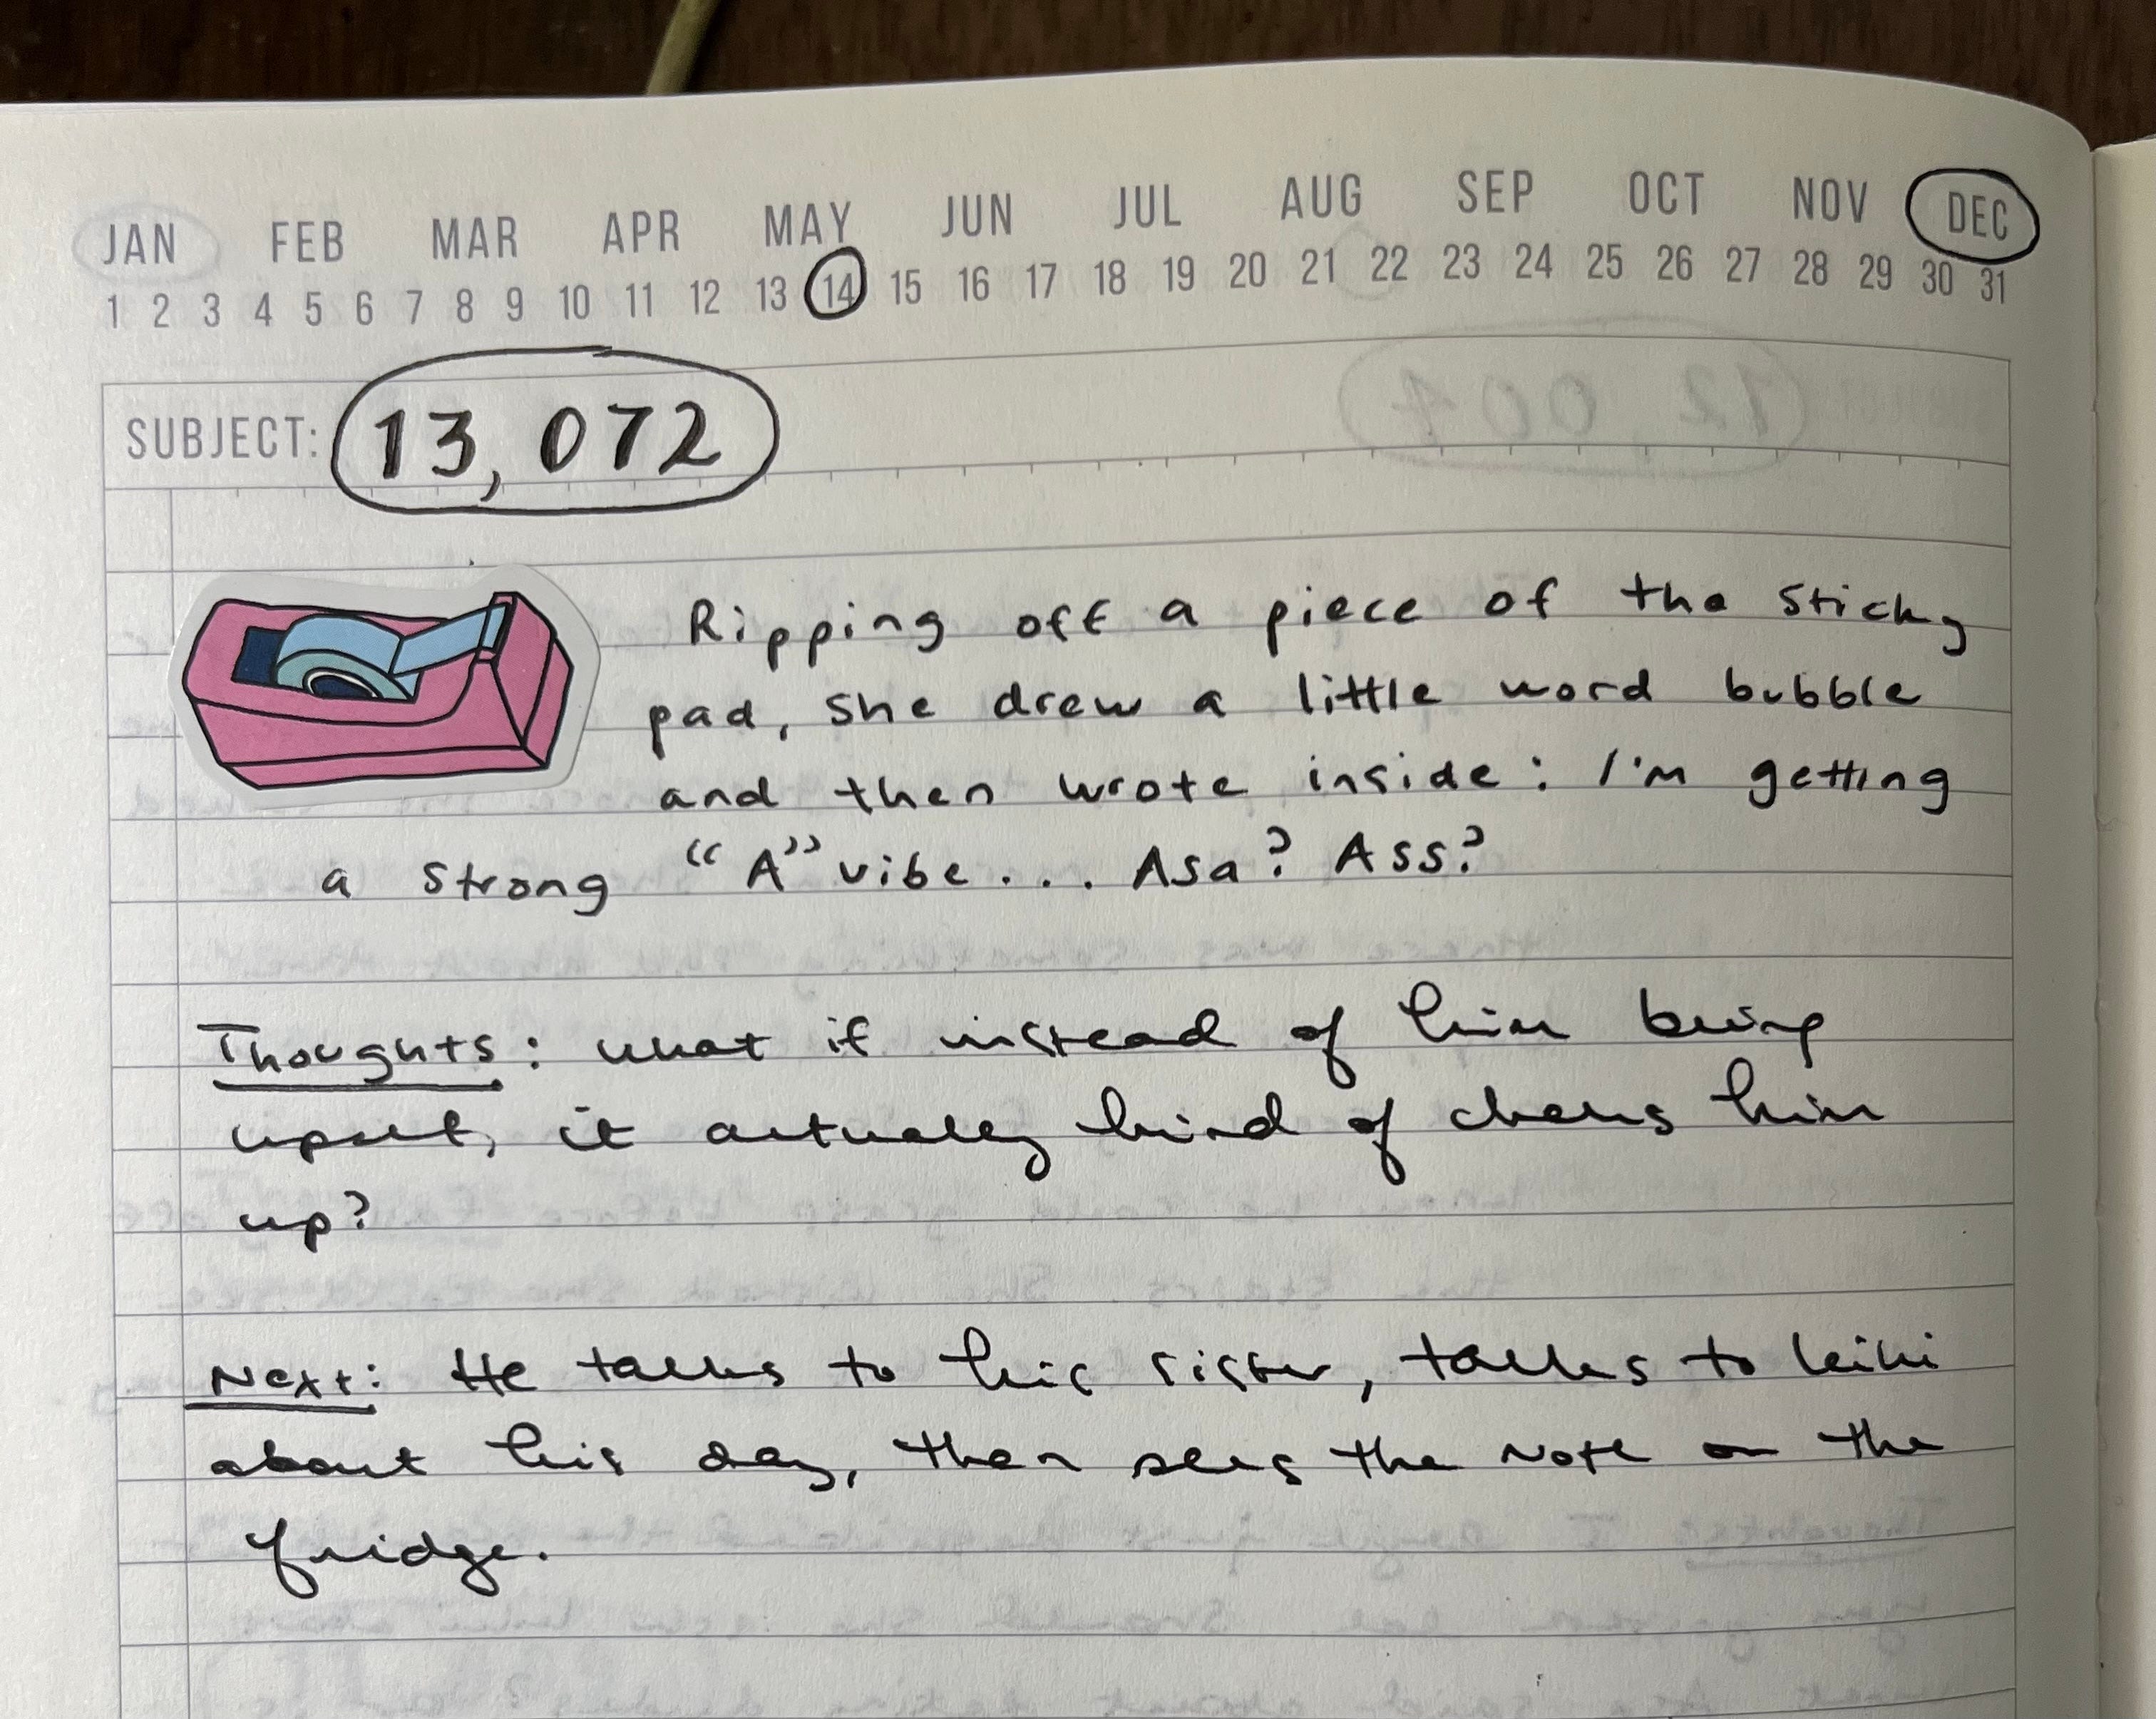 JAN FEB MAR APR MAY JUN JUL AUG SEP OCT NOV DEC
1 2 3 4 5 6 7 8 9 10 11 12 13 14 15 16 17 18 19 20 21 22 23 24 25 26 27 28 29 30 31
SUBJECT: 13,072
Ripping off a piece of the sticky
pad, she drew a little word bubble
and then wrote inside: I'm getting
a strong "A" vibe... Asa? Ass?
Thoughts: what if instead of him being
upset, it actually kind of cheers him
up?
Next: He talks to his sister, talks to kiki
about his day, then sees the note on the
fridge.